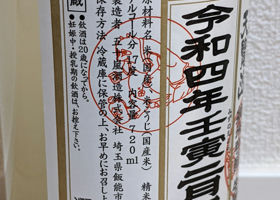 令和四年壬寅二月
原材料名 米(国産)、米こうじ(国産米) 精米
アルコール分 17度 内容量 720ml
製造者 五十嵐酒造株式会社 埼玉県飯能市
保存方法 冷蔵庫に保管の上、お早めにお召し上
蔵
●飲酒は20歳になってから。
●妊娠中・授乳期の飲酒は、お控え下さい。